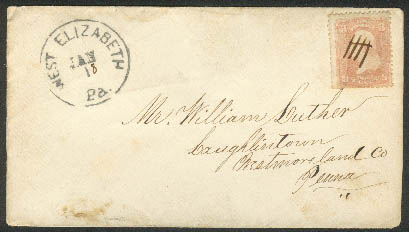 WEST ELIZABETH
JAN
18
Pa.
Mr. William Luther
Laughlintown
Westmoreland Co
Penna